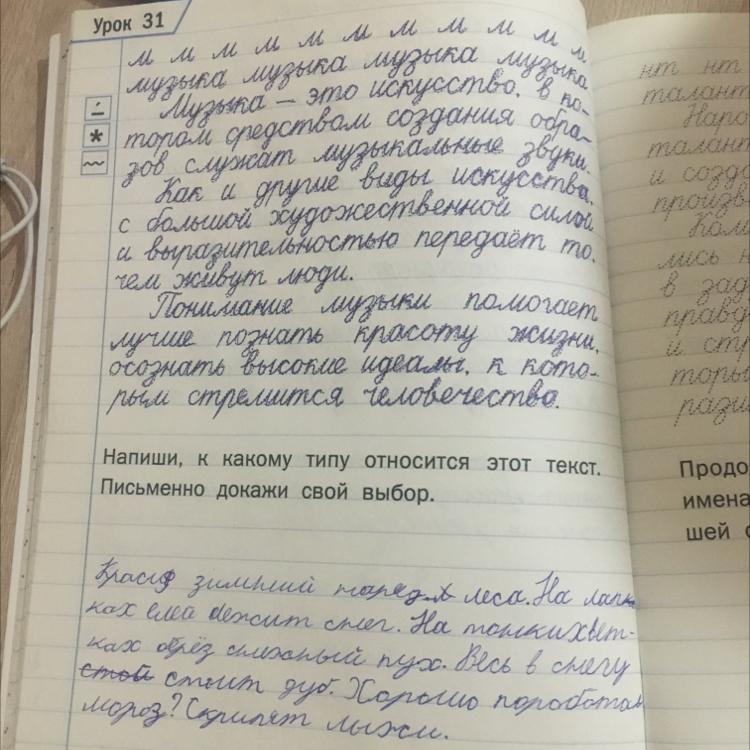 Урок 31
м м м м м м м м м м м м
музыка музыка музыка музыка
Музыка — это искусство, в ко-
тором средством создания обра-
зов служат музыкальные звуки.
Как и другие виды искусства,
с большой художественной силой
и выразительностью передаёт то,
чем живут люди.
Понимание музыки помогает
лучше познать красоту жизни,
осознать высокие идеалы, к кото-
рым стремится человечество.
Напиши, к какому типу относится этот текст.
Письменно докажи свой выбор.
зимний наряд леса. На лап-
ках елей лежит снег. На тонких вет-
ках берёз снежный пух. Весь в снегу
стоит дуб. Хорошо поработал
мороз? Скрипят лыжи.
нт нт
талант
Наро
талант
и созда
произв
Ком
лись н
в зад
правд
и стр
торы
рази
Продо
имена
шей с